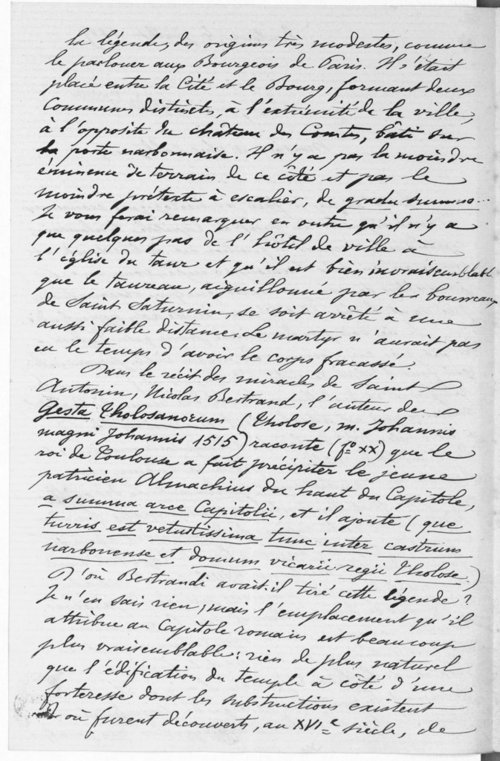 la légende, des origines très modestes, comme
le parlouer aux Bourgeois de Paris. Il s'était
placé entre la Cité et le Bourg, formant deux
communes distinctes, à l'extrémité de la ville,
à l'opposite du château des Comtes, bâti sur
la porte narbonnaise. Il n'y a pas la moindre
éminence de terrain de ce côté et pas le
moindre prétexte à escalier, de gradu summo...
Je vous ferai remarquer en outre qu'il n'y a
que quelques pas de l'hôtel de ville à
l'église du Taur et qu'il est bien invraisemblable
que le taureau, aiguillonné par les bourreaux
de Saint Saturnin, se soit arrêté à une
aussi faible distance. Le martyr n'aurait pas
eu le temps d'avoir le corps fracassé.
Dans le récit des miracles de Saint
Antonin, Nicolas Bertrand, l'auteur des
Gesta Tholosanorum (Tholose, m. Johannis
magni Johannis 1515) raconte (fo XX) que le
roi de Toulouse a fait précipiter le jeune
patricien Almachius du haut du Capitole,
a summa arce Capitolii, et il ajoute (que
turris est vetustissima tunc inter castrum
narbonense et domum vicarii regii Tholose.)
D'où Bertrandi avait-il tiré cette légende?
Je n'en sais rien, mais l'emplacement qu'il
attribue au Capitole romain est beaucoup
plus vraisemblable: rien de plus naturel
que l'édification du temple à côté d'une
forteresse dont les substructions existent
et où furent découverts, au XVIe siècle, de